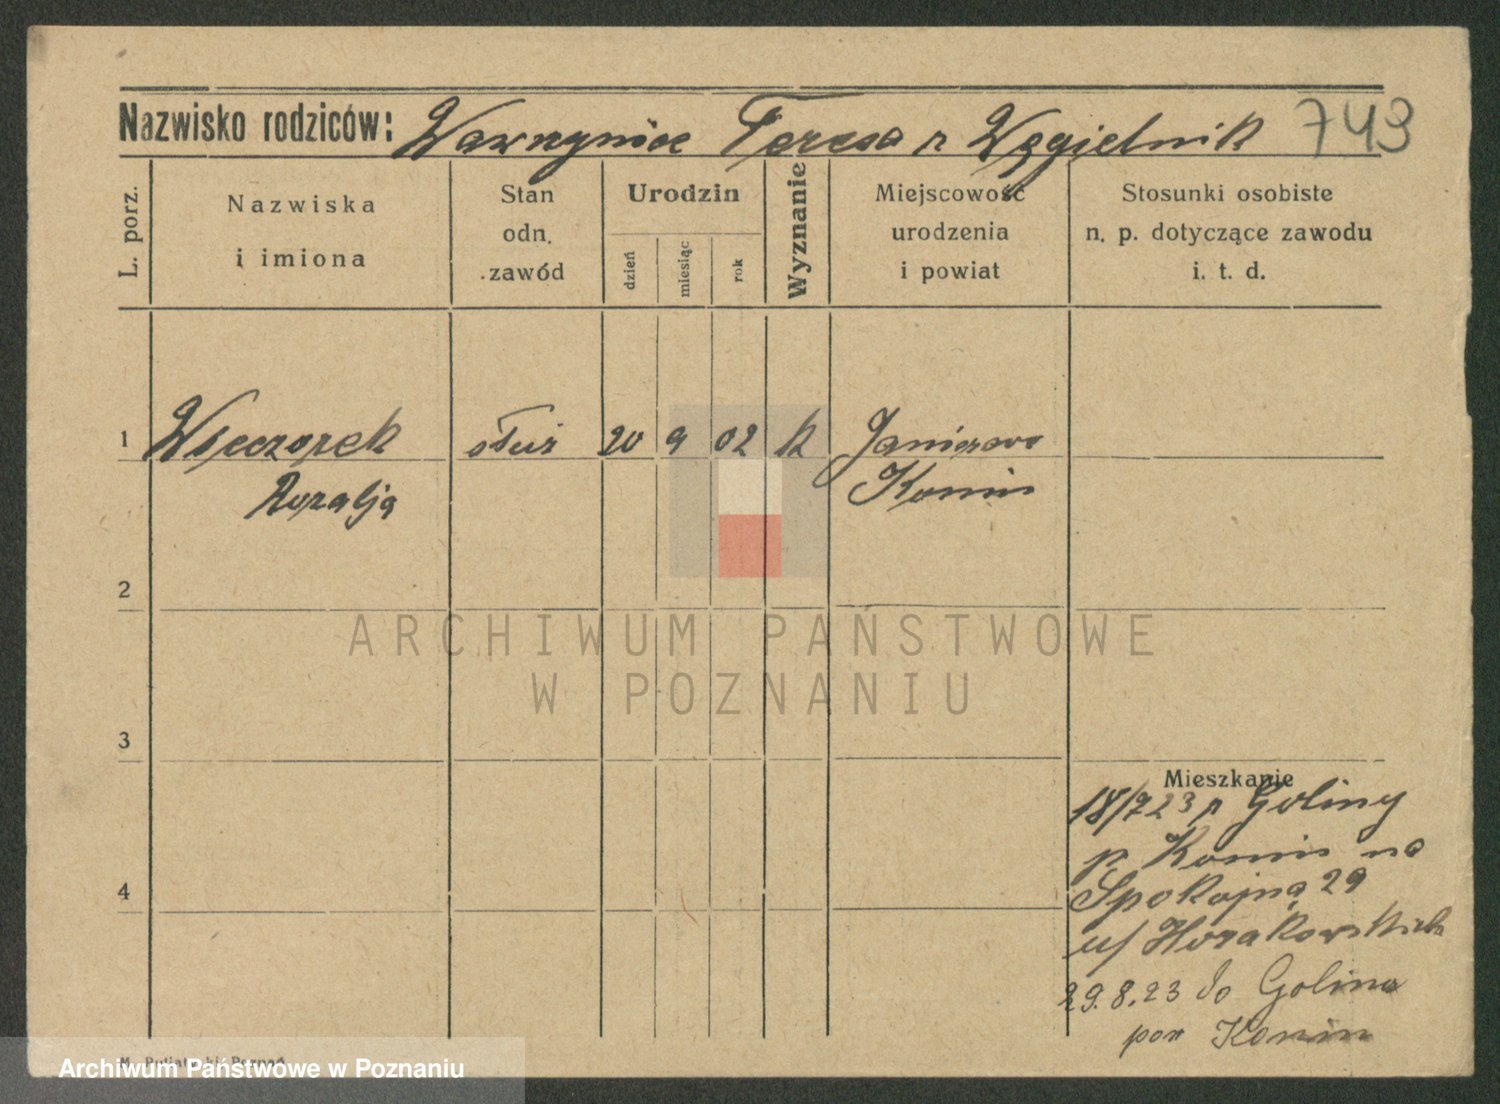 Nazwisko rodziców: Wawrzyniec Teresa z Węgielnik 743
L. porz.
Nazwiska
i imiona
Stan
odn.
zawód
Urodzin
dzień
miesiąc
rok
Wyznanie
Miejscowość
urodzenia
i powiat
Stosunki osobiste
n. p. dotyczące zawodu
i. t. d.
1 Wieczorek służ 20 9 02 k Janiszewo
Rozalja Konin
2
ARCHIWUM PAŃSTWOWE
W POZNANIU
3
Mieszkanie
18/7 23 z Goliny
p. Konin na
4 Spokojną 29
u/
29.8.23 do Golina
pow Konin
Archiwum Państwowe w Poznaniu